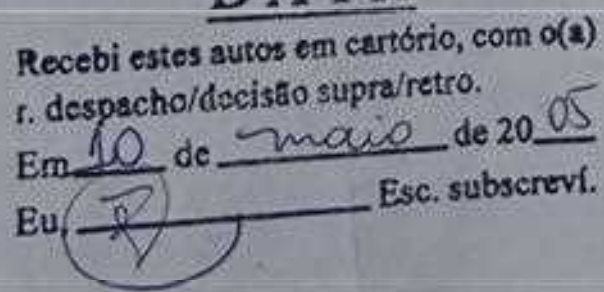 Recebi estes autos em cartório, com o(a)
r. despacho/decisão supra/retro.
Em 10 de maio de 20 05
Eu, Esc. subscreví.